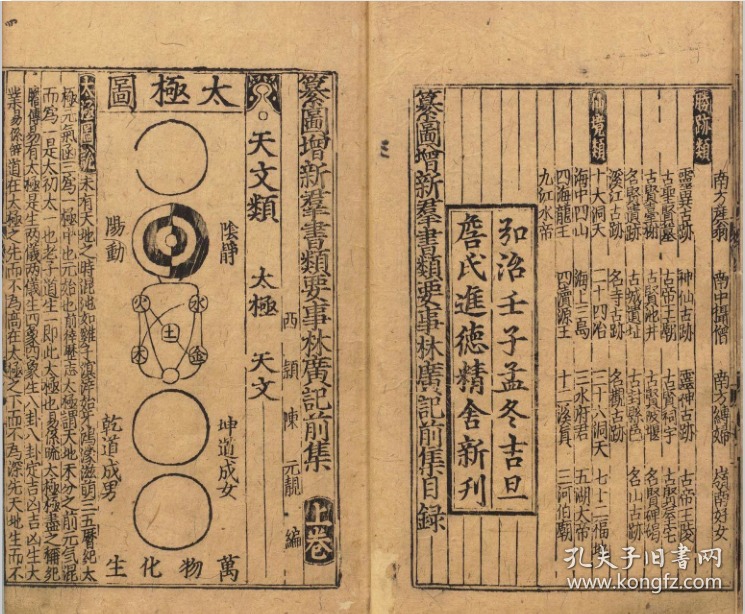 南方產翁
南中攝僧
南方縛婦
嶺南好女
勝跡類
靈異古跡
神仙古跡
靈神古跡
古帝王陵
古聖賢墓
古帝王廟
古賢祠宇
古賢臺榭
古賢池井
名賢遺跡
古城遺址
名賢碑碣
溪江古跡
名寺古跡
名觀古跡
名山古跡
仙境類
十大洞天
二十四治
三十六洞天
七十二福地
海中四山
海上三島
三水府君
五湖大帝
四海龍王
四瀆源王
十二溪真
三河伯廟
九江水帝
弘治壬子孟冬吉旦
詹氏進德精舍新刊
纂圖增新羣書類要事林廣記前集目錄
纂圖增新羣書類要事林廣記前集
上卷
西潁陳元靚編
天文類
太極
天文
太極圖
陰靜
陽動
火
水
土
木
金
坤道成女
乾道成男
萬物化生
太極圖說
未有天地之時混沌如雞子溟涬始牙鴻濛滋萌三五曆紀太
極元氣函三為一極中也元始也前律曆志太極謂天地未分之前元氣混
而為一是太初太一也老子道生一即此太極也易係疏太極極盡之稱
易有太極是生兩儀兩儀生四象四象生八卦八卦定吉凶吉凶生大
業易係辭道在太極之先而不為高在太極之下而不為深先天地生而不
孔夫子旧书网
www.kongfz.com